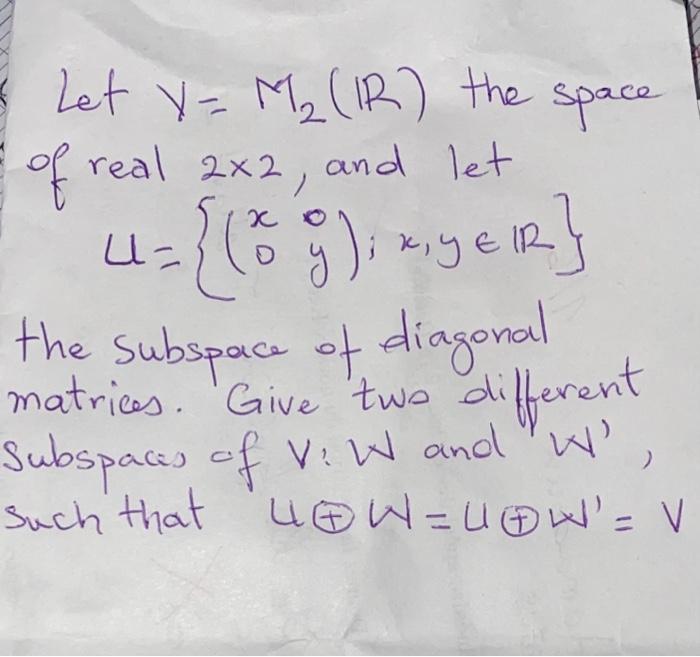 Let V = M₂(ℝ) the space
of real 2×2, and let
U = {(x 0 0 y); x, y ∈ ℝ}
the subspace of diagonal
matrices. Give two different
subspaces of V: W and W',
such that U ⊕ W = U ⊕ W' = V